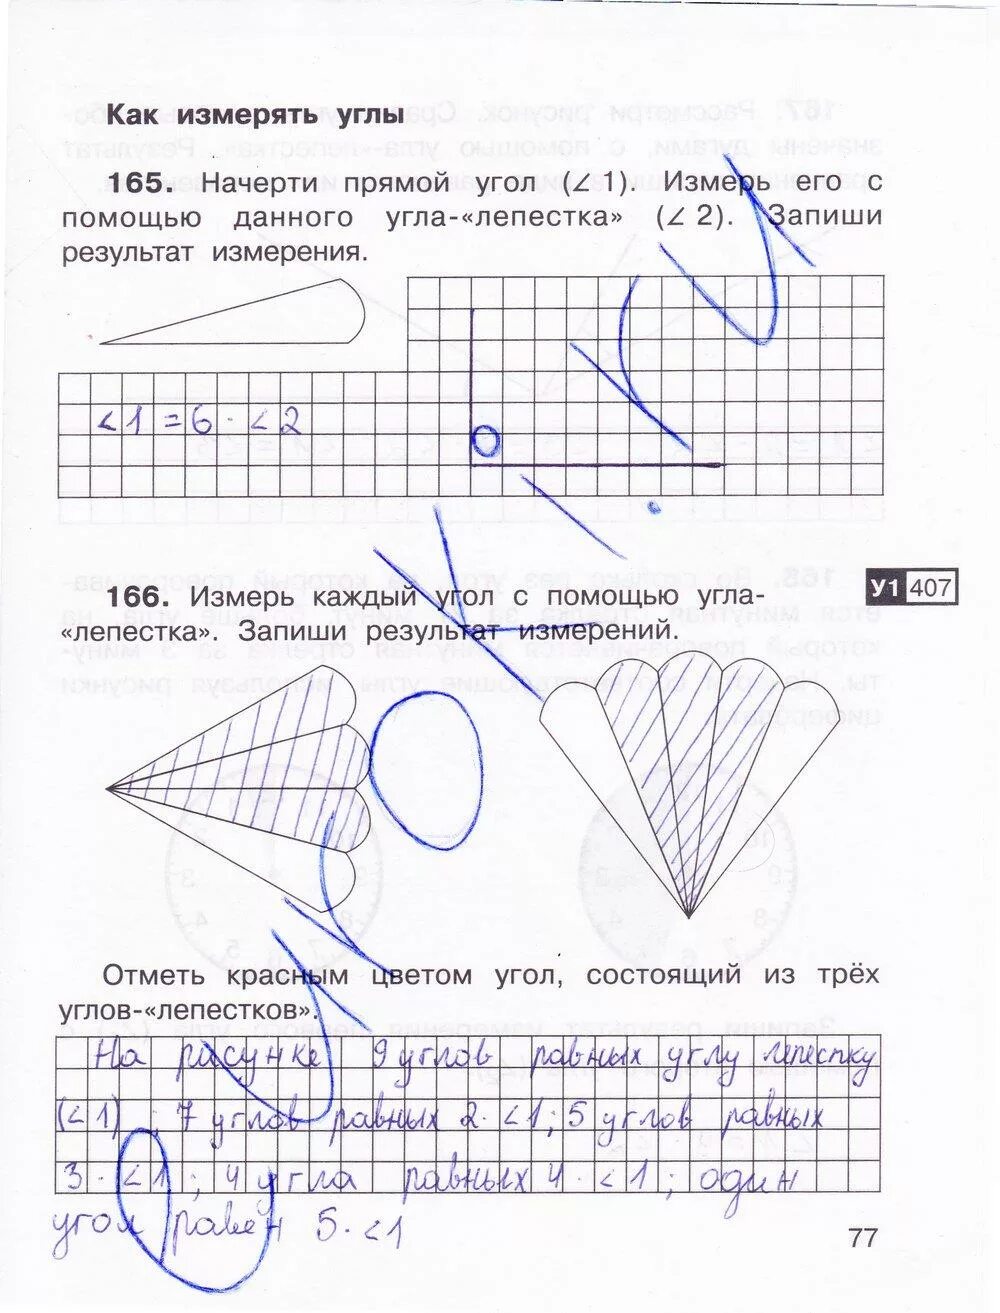 Как измерять углы
165. Начерти прямой угол (∠ 1). Измерь его с
помощью данного угла-«лепестка» (∠ 2). Запиши
результат измерения.
∠1 = 6 · ∠2
У1 407
166. Измерь каждый угол с помощью угла-
«лепестка». Запиши результат измерений.
Отметь красным цветом угол, состоящий из трёх
углов-«лепестков».
На рисунке 9 углов равных углу лепестку
(∠1) ; 7 углов равных 2 · ∠1; 5 углов равных
3 · ∠1 ; 4 угла равных 4 · ∠1 ; один
угол равен 5 · ∠1
77